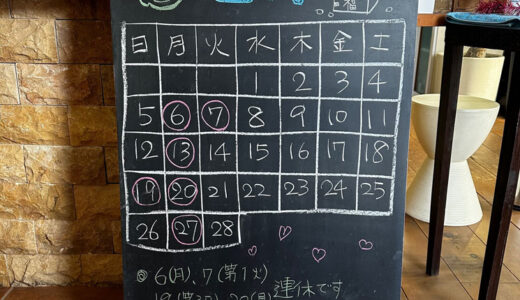 日 月 火 水 木 金 土
1 2 3 4
5 6 7 8 9 10 11
12 13 14 15 16 17 18
19 20 21 22 23 24 25
26 27 28
◎ 6(月)、7(第1火)
連休です